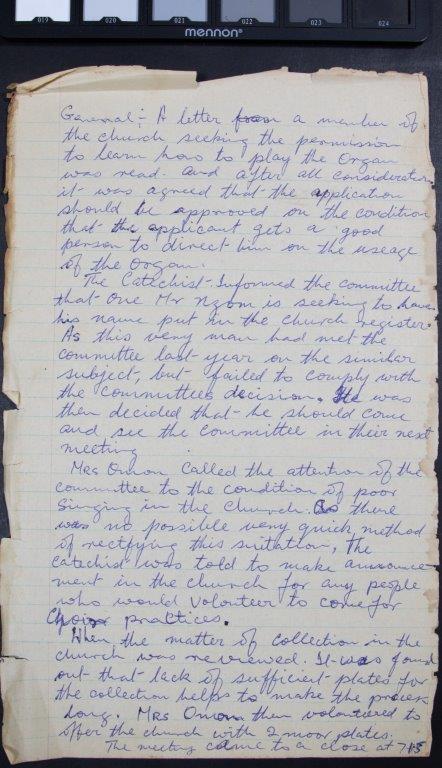 019 020 021 022 023 024
mennon®
General:- A letter from a member of
the church seeking the permission
to learn how to play the Organ
was read. and after all consideration
it was agreed that the application
should be approved on the condition
that the applicant gets a good
person to direct him on the useage
of the Organ.
The Catechist Informed the committee
that one Mr Nzom is seeking to have
his name put in the church register.
As this very man had met the
committee last year on the similar
subject, but failed to comply with
the committees decision. He was
then decided that he should come
and see the committee in their next
meeting
Mrs Omon called the attention of the
committee to the condition of poor
Singing in the church. As there
was no possible very quick method
of rectifying this suitation, The
catechist was told to make announce
ment in the church for any people
who would Volunteer to come for
Choir practices.
When the matter of collection in the
church was reviewed. It was found
out that lack of sufficient plates for
the collection helps to make the process
long. Mrs Omon then volontiered to
offer the church with 2 moor plates.
The meeting came to a close at